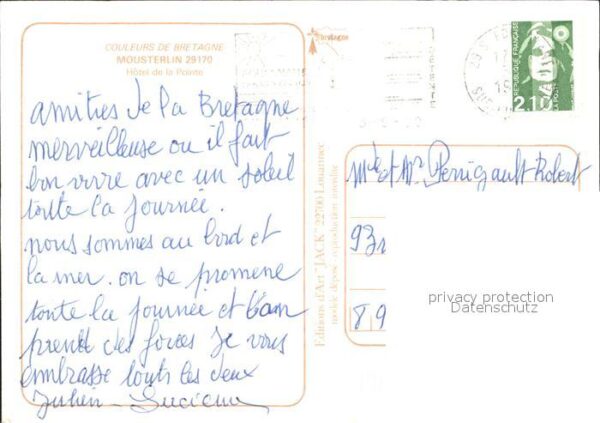 COULEURS DE BRETAGNE
MOUSTERLIN 29170
Hôtel de la Pointe
amitiés de la Bretagne
merveilleuse ou il fait
bon vivre avec un soleil
toute la journée.
nous sommes au bord et
la mer. on se promene
toute la journée et l'on
prend des forces Je vous
embrasse touts les deux
Julien - Lucienne
Bretagne
Editions d'Art "JACK" 22700 Louannec
modèle déposé - reproduction interdite
REPUBLIQUE FRANÇAISE
2,10
Mde et Mr Perrigault Robert
93
89
privacy protection
Datenschutz